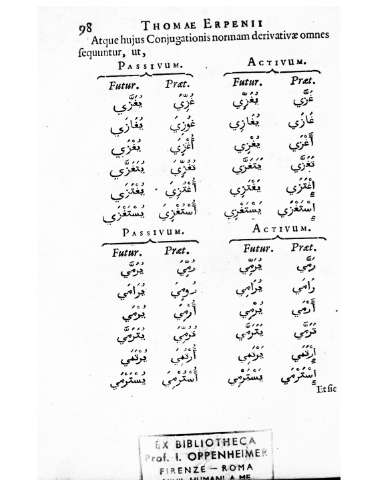 98 THOMAE ERPENII
Atque hujus Conjugationis normam derivativæ omnes
sequuntur, ut,
PASSIVUM. ACTIVUM.
Futur. Præt. Futur. Præt.
يُغَزَّي غُزِّيَ يُغَزِّي غَزَّي
يُغَازَي غُوزِيَ يُغَازِي غَازَي
يُغْزَي أُغْزِيَ يُغْزِي أَغْزَي
يُتَغَزَّي تُغُزِّيَ يَتَغَزَّي تَغَزَّي
يُغْتَزَي أُغْتُزِيَ يَغْتَزِي إِغْتَزَي
يُسْتَغْزَي أُسْتُغْزِيَ يَسْتَغْزِي إِسْتَغْزَي
PASSIVUM. ACTIVUM.
Futur. Præt. Futur. Præt.
يُرَمَّي رُمِّيَ يُرَمِّي رَمَّي
يُرَامَي رُومِيَ يُرَامِي رَامَي
يُرْمَي أُرْمِيَ يُرْمِي أَرْمَي
يُتَرَمَّي تُرُمِّيَ يَتَرَمَّي تَرَمَّي
يُرْتَمَي أُرْتُمِيَ يَرْتَمِي إِرْتَمَي
يُسْتَرْمَي أُسْتُرْمِيَ يَسْتَرْمِي إِسْتَرْمَي
Et sic
EX BIBLIOTHECA
Prof. I. OPPENHEIMER
FIRENZE – ROMA